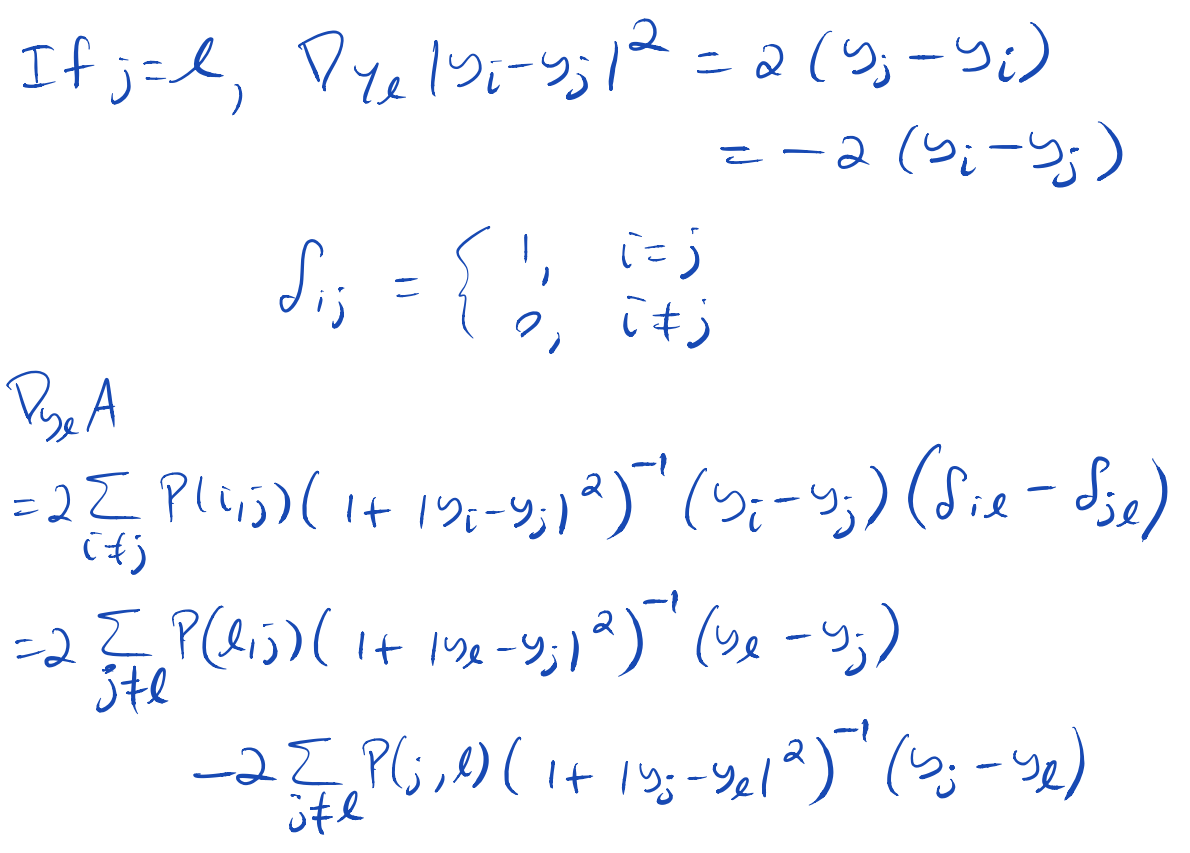 If j=ℓ, ∇yℓ |yi-yj|² = 2(yj-yi)
= -2(yi-yj)
δij = { 1, i=j
0, i≠j
∇yℓ A
=2 Σ i≠j P(i,j)(1+|yi-yj|²)⁻¹(yi-yj)(δiℓ-δjℓ)
=2 Σ j≠ℓ P(ℓ,j)(1+|yℓ-yj|²)⁻¹(yℓ-yj)
-2 Σ j≠ℓ P(j,ℓ)(1+|yj-yℓ|²)⁻¹(yj-yℓ)